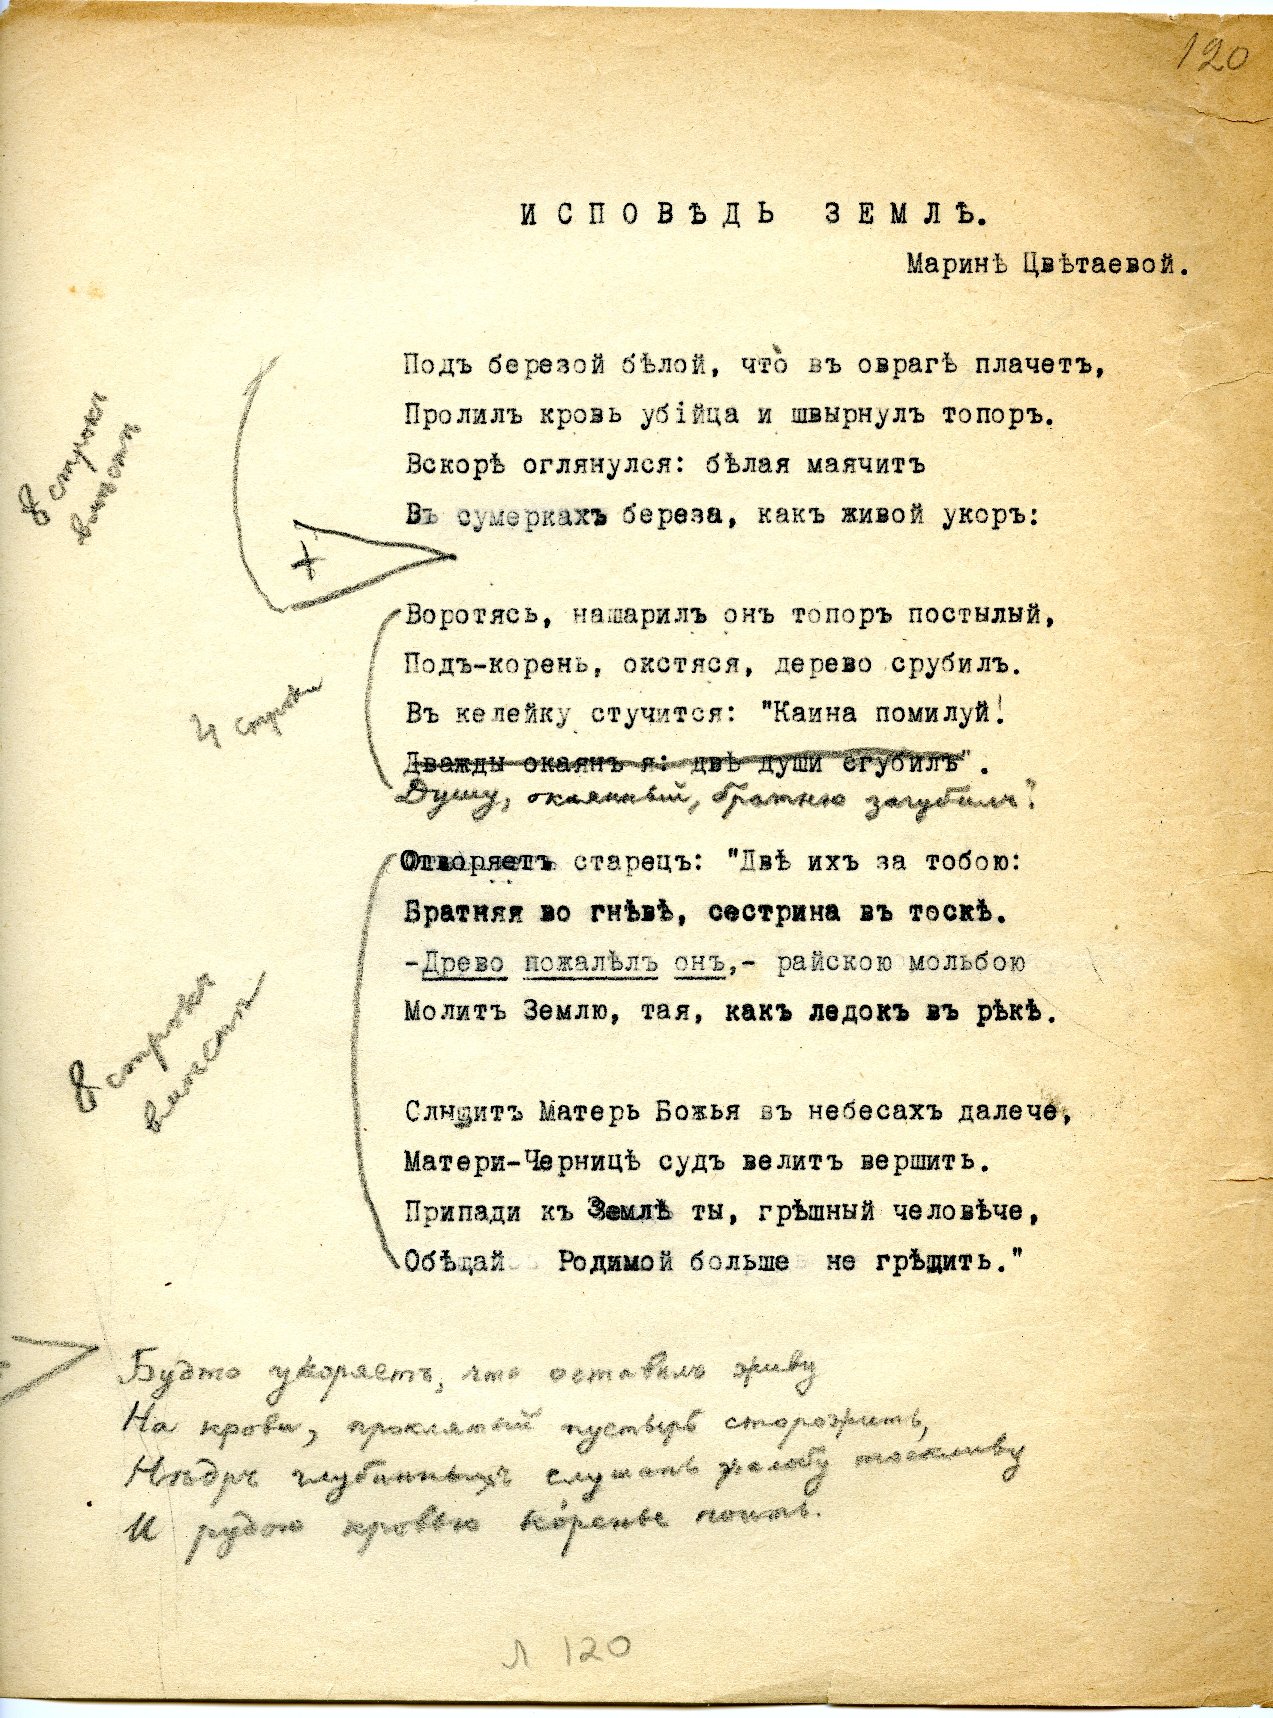 120
ИСПОВѢДЬ ЗЕМЛѢ.
Маринѣ Цвѣтаевой.
Подъ березой бѣлой, что̀ въ оврагѣ плачетъ,
Пролилъ кровь убійца и швырнулъ топоръ.
Вскорѣ оглянулся: бѣлая маячитъ
Въ сумеркахъ береза, какъ живой укоръ:
8 строкъ
вмѣстѣ
+
Воротясь, нашарилъ онъ топоръ постылый,
Подъ-корень, окстяся, дерево срубилъ.
Въ келейку стучится: "Каина помилуй!
Дважды окаянъ я: двѣ души сгубилъ".
Душу, окаянный, братнюю загубилъ".
4 строки
Отворяетъ старецъ: "Двѣ ихъ за тобою:
Братняя во гнѣвѣ, сестрина въ тоскѣ.
-Древо пожалѣлъ онъ,- райскою мольбою
Молитъ Землю, тая, какъ ледокъ въ рѣкѣ.
8 строкъ
вмѣстѣ
Слышитъ Матерь Божья въ небесахъ далече,
Матери-Черницѣ судъ велитъ вершить.
Припади къ Землѣ ты, грѣшный человѣче,
Обѣщай Родимой больше не грѣшить."
Будто укоряетъ, что оставилъ живу
На крови, проклятый пустырь сторожить,
Нѣдръ глубинныхъ слушать жалобу тоскливу
И рудою кровью ко́ренье поить.
Л 120